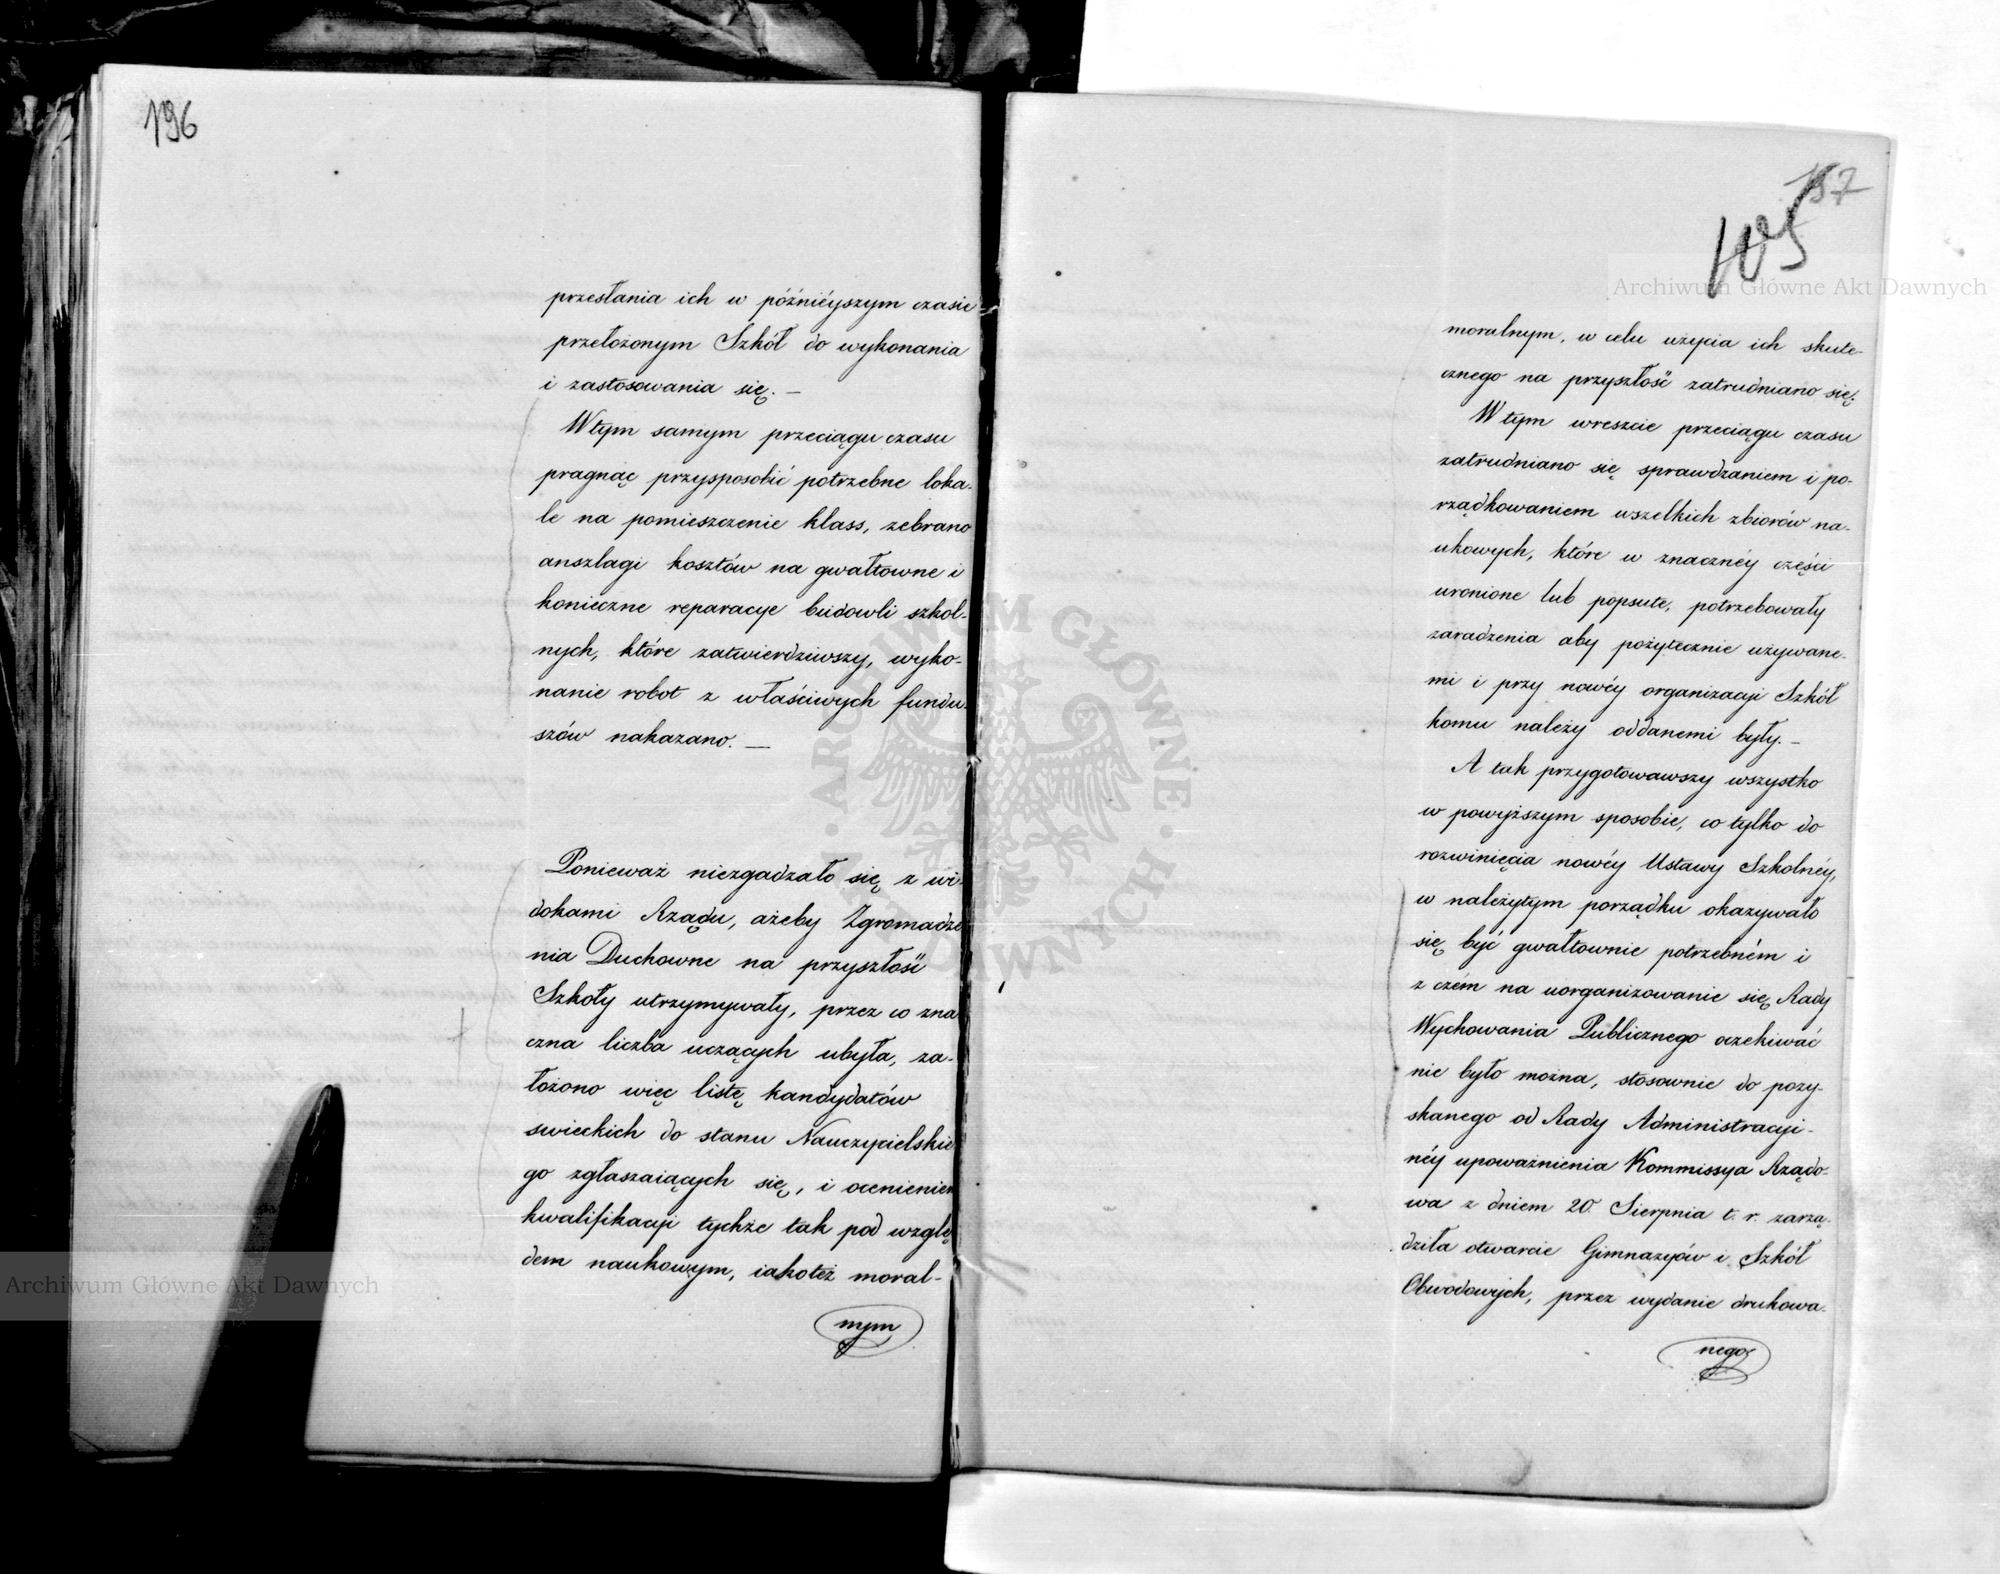 196
przesłania ich w późniéyszym czasie
przełożonym Szkół do wykonania
i zastosowania się. —
W tym samym przeciągu czasu
pragnąc przysposobić potrzebne loka-
le na pomieszczenie klass, zebrano
anszlagi kosztów na gwałtowne i
konieczne reparacye budowli szkol-
nych, które zatwierdziwszy, wyko-
nanie robot z właściwych fundu-
szów nakazano. —
Ponieważ niezgadzało się z wi-
dokami Rządu, ażeby Zgromadze
nia Duchowne na przyszłość
Szkoły utrzymywały, przez co zna
czna liczba uczących ubyła, za-
łożono więc listę kandydatów
swieckich do stanu Nauczycielskie
go zgłaszaiących się, i ocenieniem
kwalifikacyi tychże tak pod wzglę
dem naukowym, iakoteż moral-
nym
197
105
moralnym, w celu użycia ich skute-
cznego na przyszłość zatrudniano się.
W tym wreszcie przeciągu czasu
zatrudniano się sprawdzaniem i po-
rządkowaniem wszelkich zbiorów na-
ukowych, które w znacznéy części
uronione lub popsute, potrzebowały
zaradzenia aby pożytecznie używane-
mi i przy nowéy organizacyi Szkół
komu należy oddanemi były. —
A tak przygotowawszy wszystko
w powyższym sposobie, co tylko do
rozwinięcia nowéy Ustawy Szkolnéy,
w należytym porządku okazywało
się być gwałtownie potrzebném i
z czém na uorganizowanie się Rady
Wychowania Publicznego oczekiwać
nie było można, stosownie do pozy-
skanego od Rady Administracyi-
néy upoważnienia Kommissya Rządo-
wa z dniem 20. Sierpnia t. r. zarzą-
dziła otwarcie Gimnazyów i Szkół
Obwodowych, przez wydanie drukowa-
nego
Archiwum Główne Akt Dawnych
Archiwum Główne Akt Dawnych
ARCHIWUM GŁÓWNE AKT DAWNYCH